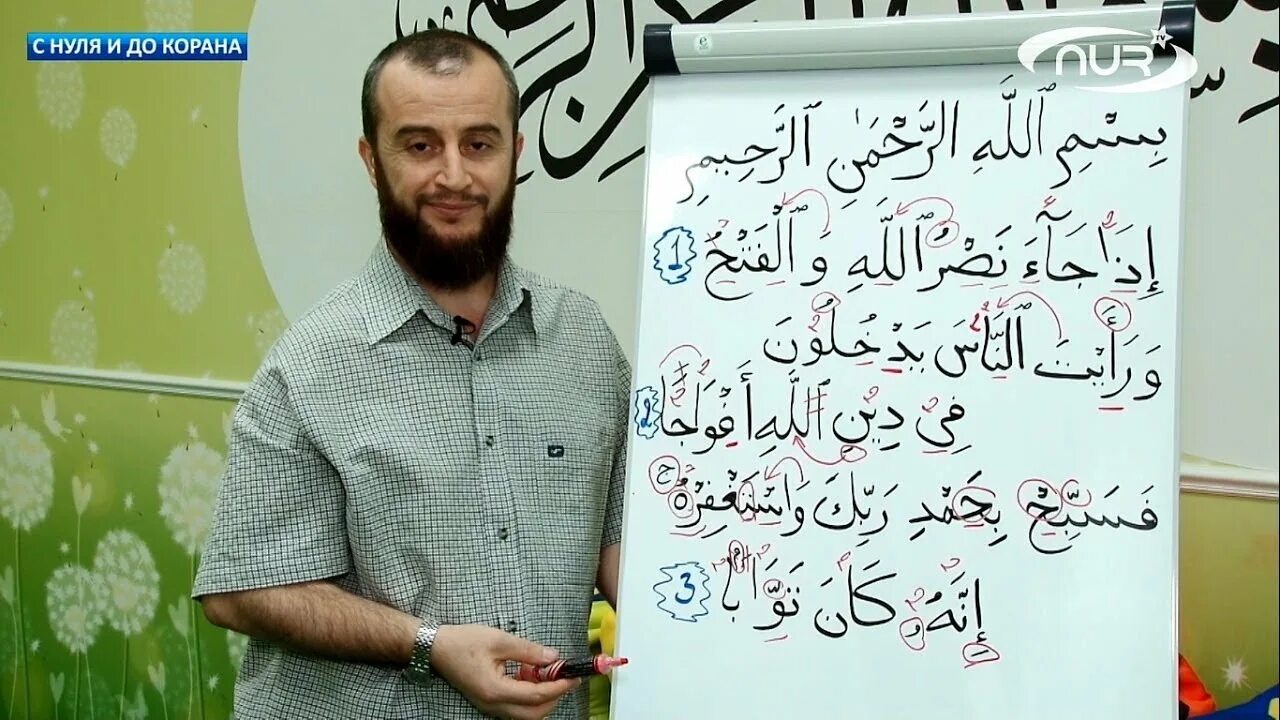 С НУЛЯ И ДО КОРАНА
NUR TV
بِسْمِ ٱللَّهِ ٱلرَّحْمَٰنِ ٱلرَّحِيمِ
إِذَا جَآءَ نَصْرُ ٱللَّهِ وَ ٱلْفَتْحُ 1
وَ رَأَيْتَ ٱلنَّاسَ يَدْخُلُونَ
فِي دِينِ ٱللَّهِ أَفْوَاجًا 2
فَسَبِّحْ بِحَمْدِ رَبِّكَ وَاسْتَغْفِرْهُ
إِنَّهُ كَانَ تَوَّابًا 3